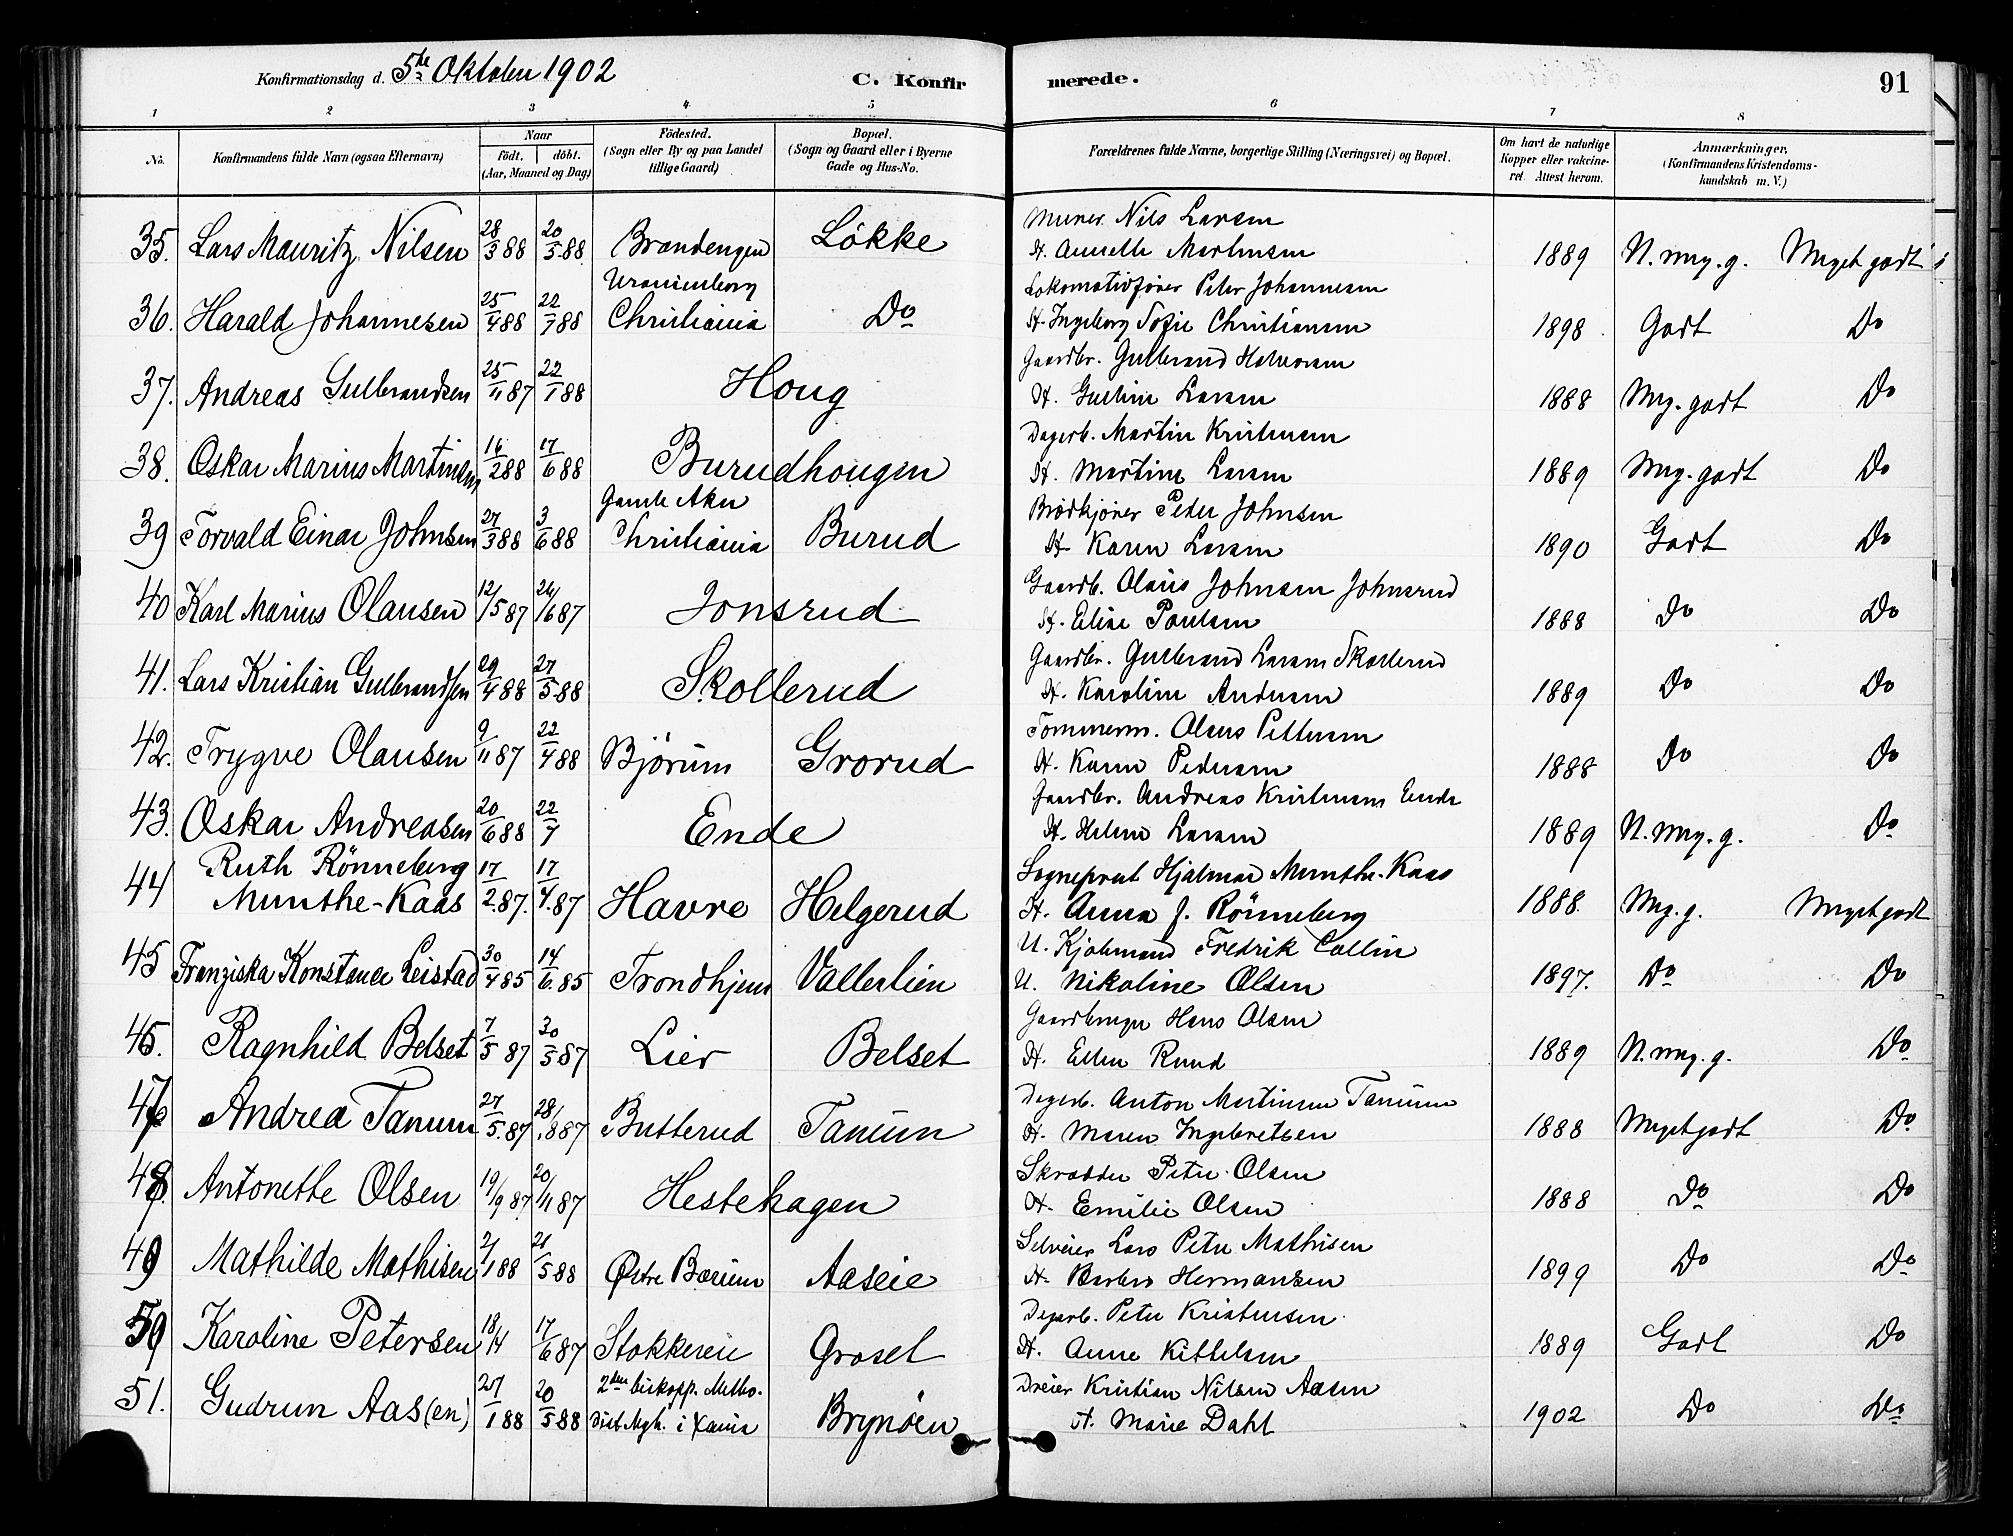 Konfirmationsdag d. 5te Oktober 1902
C. Konfirmerede.
91
1 2 3 4 5 6 7 8
No. Konfirmandens fulde Navn (ogsaa Efternavn) Naar födt. döbt. (Aar, Maaned og Dag) Födested. (Sogn eller By og paa Landet tillige Gaard) Bopæl. (Sogn og Gaard eller i Byerne Gade og Hus-No. Forældrenes fulde Navne, borgerlige Stilling (Næringsvei) og Bopæl. Om havt de naturlige Kopper eller vakcineret. Attest herom. Anmærkninger. (Konfirmandens Kristendomskundskab m. V.)
Murer. Nils Larsen
35. Lars Mauritz Nilsen 28/3 88 20/5 88 Brandengen Løkke H. Annette Martinsen 1889 N. meg. g. Meget godt
Uranienborg Lokomotivfører Peter Johannesen
36. Harald Johannesen 25/4 88 22/7 88 Christiania Do H. Ingeborg Sofie Christiansen 1898 Godt Do
Gaardbr. Gulbrand Halvorsen
37. Andreas Gulbrandsen 25/11 87 22/1 88 Houg H. Gustine Larsen 1888 Meg. godt Do
Dagarb. Martin Kristensen
38. Oskar Marius Martinsen 16/2 88 17/6 88 Burudhougen H. Martine Larsen 1889 Meg. godt Do
Gamle Aker Brødkjører Peder Johnsen
39 Torvald Einar Johnsen 27/3 88 3/6 88 Christiania Burud H. Karen Larsen 1890 Godt Do
Gaardb. Olaus Johnsen Johnsrud
40 Karl Marius Olausen 12/5 87 26/6 87 Jonsrud H. Eline Paulsen 1888 Do Do
Gaardbr. Gulbrand Larsen Skollerud
41. Lars Kristian Gulbrandsen 29/4 88 27/5 88 Skollerud H. Karoline Andersen 1889 Do Do
Tømmerm. Olaus Pettersen
42. Trygve Olausen 9/11 87 22/4 88 Bjørum Grorud H. Karen Pedersen 1888 Do Do
Gaardbr. Andreas Kristensen Ende
43. Oskar Andreasen 20/6 88 22/7 Ende H. Helene Larsen 1889 N. meg. g. Do
Ruth Rönneberg Sogneprest Hjalmar Munthe-Kaas
44 Munthe-Kaas 17/2 87. 17/4 87 Havre Helgerud H. Anna J. Rönneberg 1888. Meg. g. Meget godt
U. Kjøbmand Fredrik Collin
45 Franziska Konstance Leistad 30/4 85 14/6 85 Trondhjem Vallerlien U. Nikoline Olsen 1897. Do Do
Gaardbruger Hans Olsen
46. Ragnhild Belset 7/5 87 30/5 87 Lier Belset H. Ellen Ruud 1889 N. meg. g. Do
Dagarb. Anton Martinsen Tanum
47 Andrea Tanum 27/5. 87 28/8 87 Butterud Tanum H. Maren Ingebretsen 1888 Meget godt Do
Skrædder Peter Olsen
48. Antonethe Olsen 19/9 87 20/11 87 Hestehagen H. Emilie Olsen 1888 Do Do
Selveier Lars Peter Mathisen
49 Mathilde Mathisen 2/1 88 21/5 88 Østre Bærum Aaseie H. Barbro Hermansen 1899 Do Do
Dagarb. Peter Kristensen.
50 Karoline Petersen 18/4 17/6 87 Stokkereie Groset H. Anne Kittelsen 1889 Godt Do
2den biskopp. Metho- Dreier Kristian Nilsen Aasen
51. Gudrun Aas(en) 27/1 88 20/5 88 dist Mgh. i Xania Brynöen H. Marie Dahl 1902 Do Do